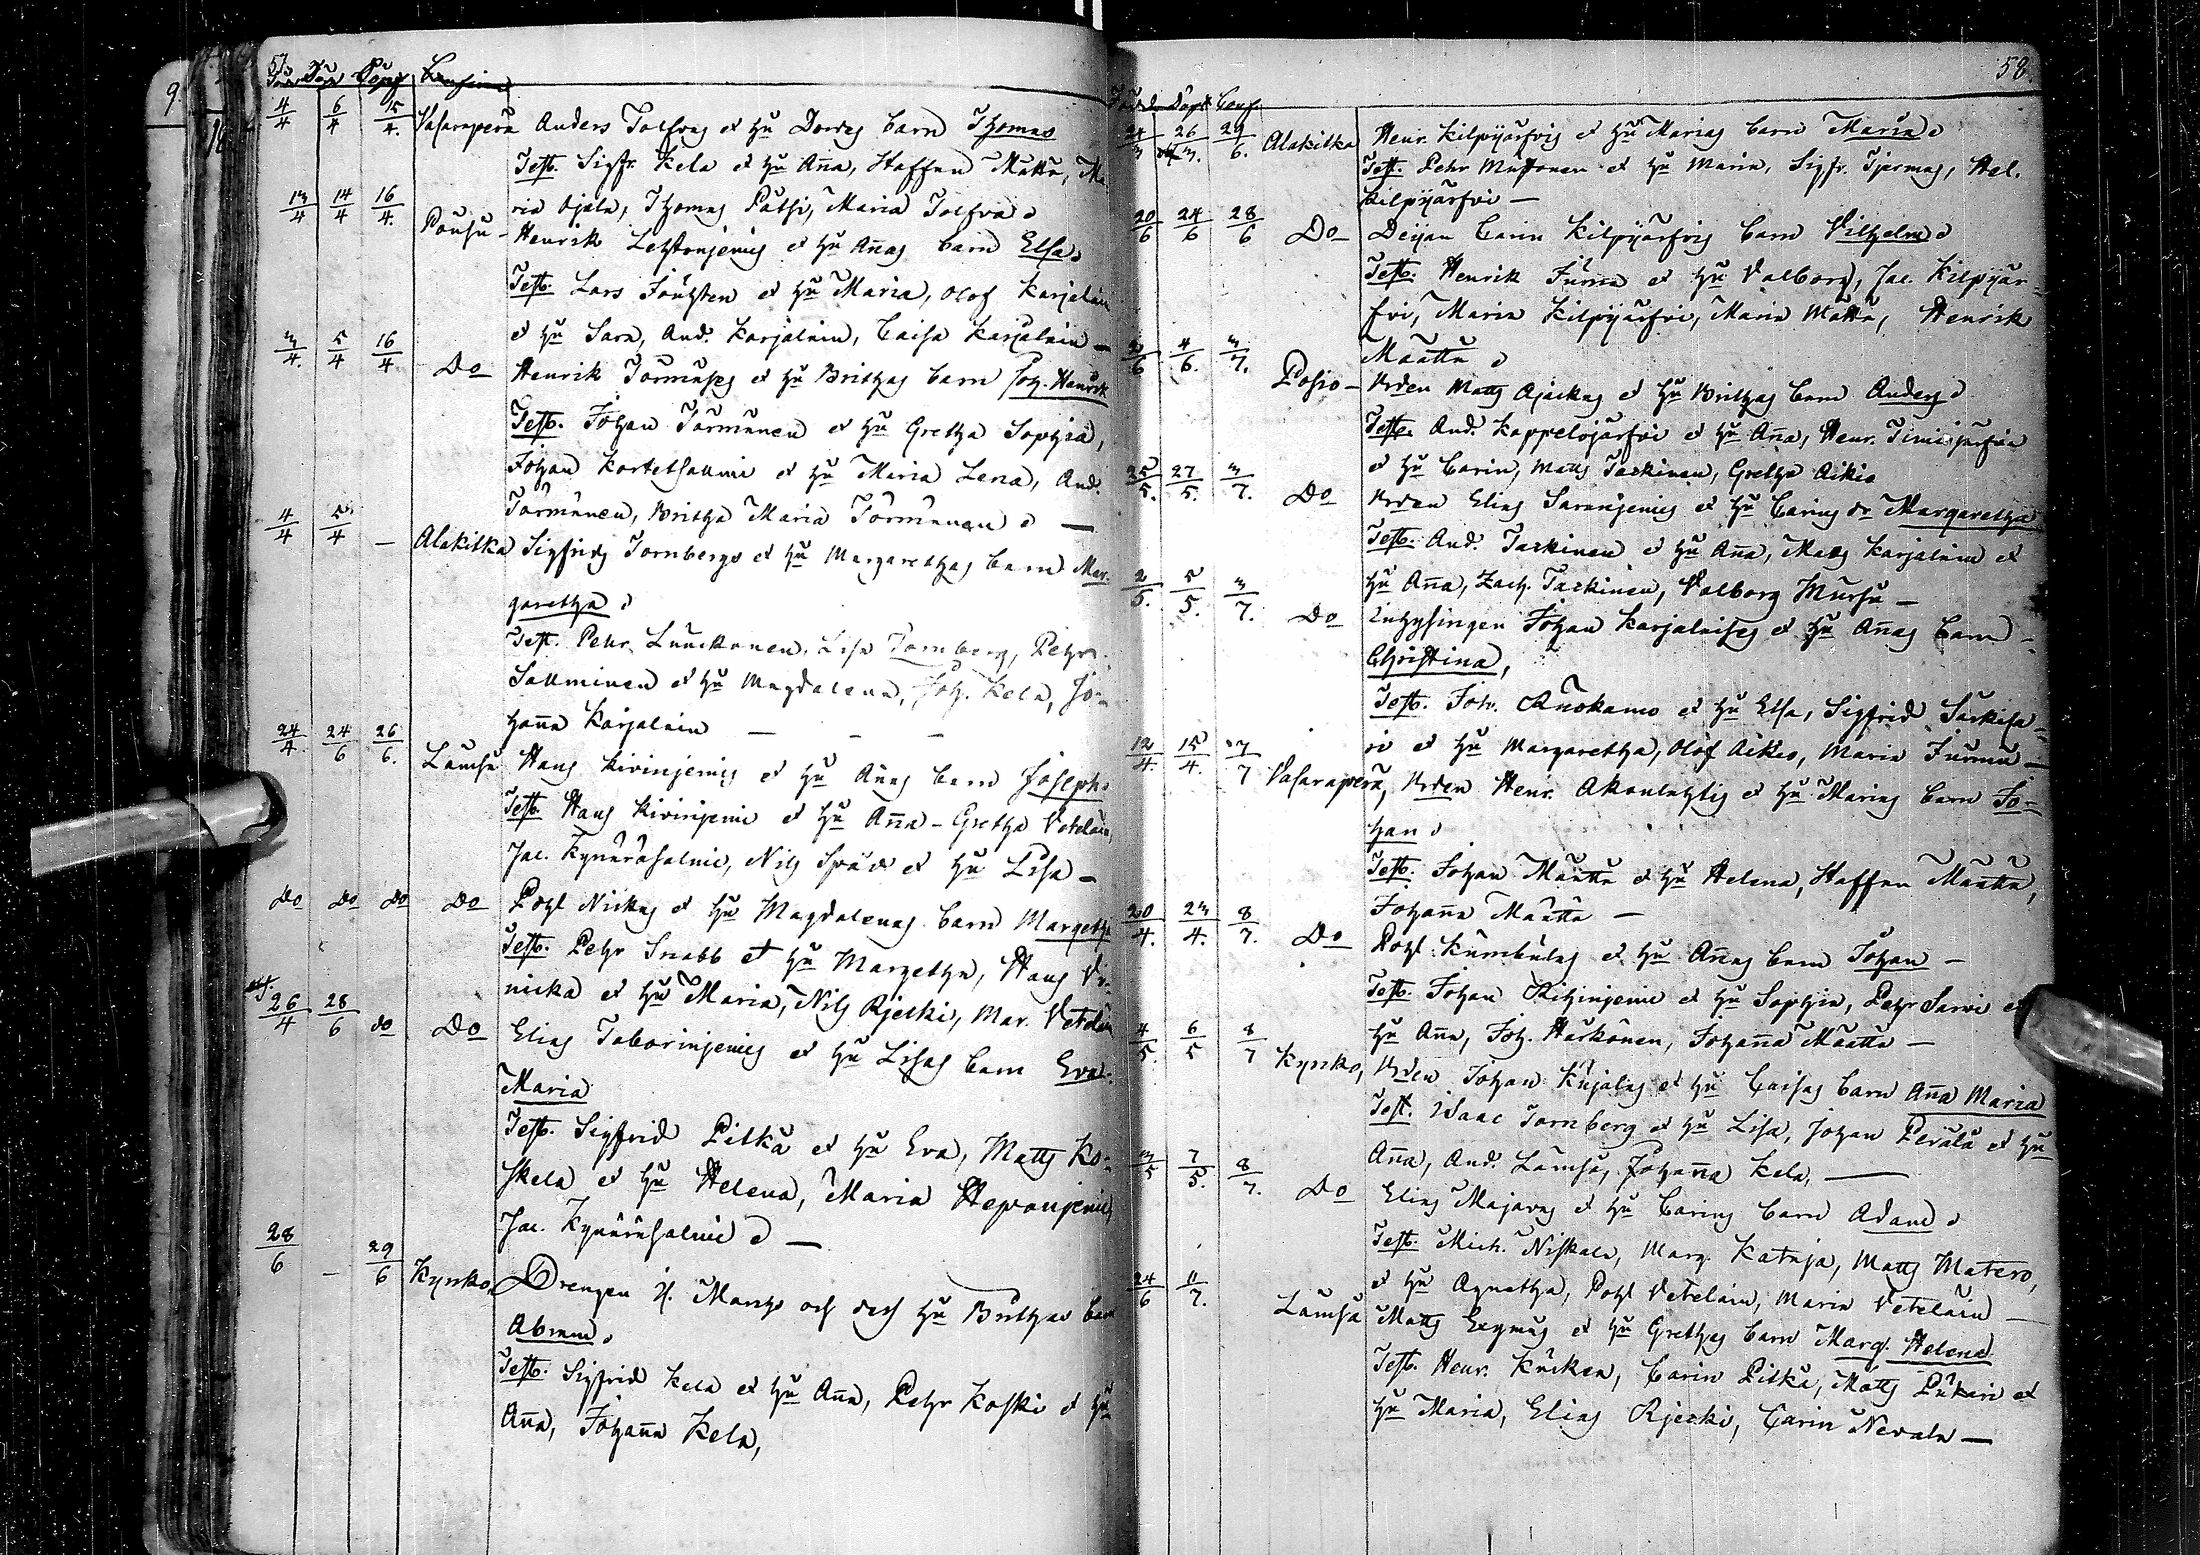 57
Född Döpt Conf
4/4 6/4 15/4. Vasaraperä Anders Tolfvas et hu Dordes barn Thomas
Test. Sigfr. Kela et hu Anna, Staffan Määttä, Ma
ria Ojala, Thomas Pätsi, Maria Tolfva
13/4 14/4 16/4. Pousu Henrik Lehtonjemis et hu Annas barn Elsa
Test. Lars et hu Maria, Olof Karjalain
et hu Sara, And. Karjalain, Caisa Karjalain —
3/4. 5/4 16/4 Do Henrik Törmäses et hu Brithas barn Joh. Henrik
Test. Johan Törmänen et hu Gretha Sophia,
Johan Kortetsalmi et hu Maria Lena, And.
Törmänen, Britha Maria Törmänen —
4/4 5/4 — Alakitka Sigfrids Tornbergs et hu Margarethas barn Mar-
garetha
Test. Pehr Luuckonen, Lisa Tornberg, Pehr
Salminen et hu Magdalena, Joh. Kela, Jo-
hanna Karjalain — — —
24/4. 24/6 26/6. Lämsä Hans Kivinjemis et hu Annas barn Joseph
Test. Hans Kivinjemi et hu Anna – Gretha Vetelain,
Jac. Kynäräsalmi, Nils Späd et hu Lisa —
Do Do Do Do Pohl Nickas et hu Magdalenas barn Margetha
Test. Pehr Snabb et hu Margetha, Hans Vi-
nicka et hu Maria, Nils Rjecki, Mar. Vetelain
26/4 28/6 do Do Elias Taborinjemis et hu Lisas barn Eva
Maria
Test. Sigfrid Pitkä et hu Eva, Matts Ko-
skela et hu Helena, Maria Heponjemi,
Jac. Kynäräsalmi —
28/6 — 29/6 Kynko, Drengen H. Manths och dess hu Brithas barn
Abram
Test. Sigfrid Kela et hu Anna, Pehr Koski et hu
Anna, Johanna Kela,
58
Född Döpt Conf
24/3 26/3. 29/6. Alakitka Henr. Kilpijärfvis et hu Marias barn Maria
Test. Pehr Mustonen et hu Maria, Sigfr. Tjermas, Hel.
Kilpijärfvi —
20/6 24/6 28/6 Do Deijan Carin Kilpijärfvis barn Vilhelm
Test. Henrik Jurmu et hu Valborg, Jac. Kilpijär-
fvi, Maria Kilpijärfvi, Maria Määttä, Henrik
Määttä
2/6 4/6. 3/7. Posio — Bden Matts Ajäckas et hu Brithas barn Anders
Test. And. Kappelojärfvi et hu Anna, Henr. Timisjärfvi
et hu Carin, Matts Taskinen, Gretha Aikio
25/5. 27/5. 3/7. Do Bden Elias Saranjemis et hu Carins dr Margaretha
Test. And. Taskinen et hu Anna, Matts Karjalain et
hu Anna, Zach. Taskinen, Valborg Mursu —
2/5. 5/5. 3/7. Do Inhysingen Johan Karjalaises et hu Annas barn
Christina,
Test. Joh. Anokamo et hu Elsa, Sigfrid Särkisa-
ri et hu Margaretha, Olof Aikio, Maria Jurmu —
12/4. 15/4. 7/7 Vasaraperä, Bden Henr. Akonlahtis et hu Marias barn Jo-
han
Test. Johan Määttä et hu Helena, Staffan Määttä,
Johanna Määttä —
20/4. 23/4. 8/7. Do Pohl Kumbulas et hu Annas barn Johan —
Test. Johan Riihinjemi et hu Sophia, Pehr Sarvi et
hu Anna, Joh. Härkönen, Johanna Määttä —
4/5. 6/5 8/7 Kynko, Bden Johan Kujalas et hu Caisas barn Anna Maria
Test. Isaac Tornberg et hu Lisa, Johan Perälä et hu
Anna, And. Lämsä, Johanna Kela, —
3/5 7/5. 8/7. Do Elias Majavas et hu Carins barn Adam
Test. Mich. Niskala, Marg. Kataja, Matts Matero,
et hu Agnetha, Pohl Vetelain, Maria Vetelain —
24/6 11/7. Lämsä Matts Ervmas et hu Grethas barn Marg. Helena
Test. Henr. Käcken, Carin Pitkä, Matts Pukari et
hu Maria, Elias Rjecki, Carin Nevala —